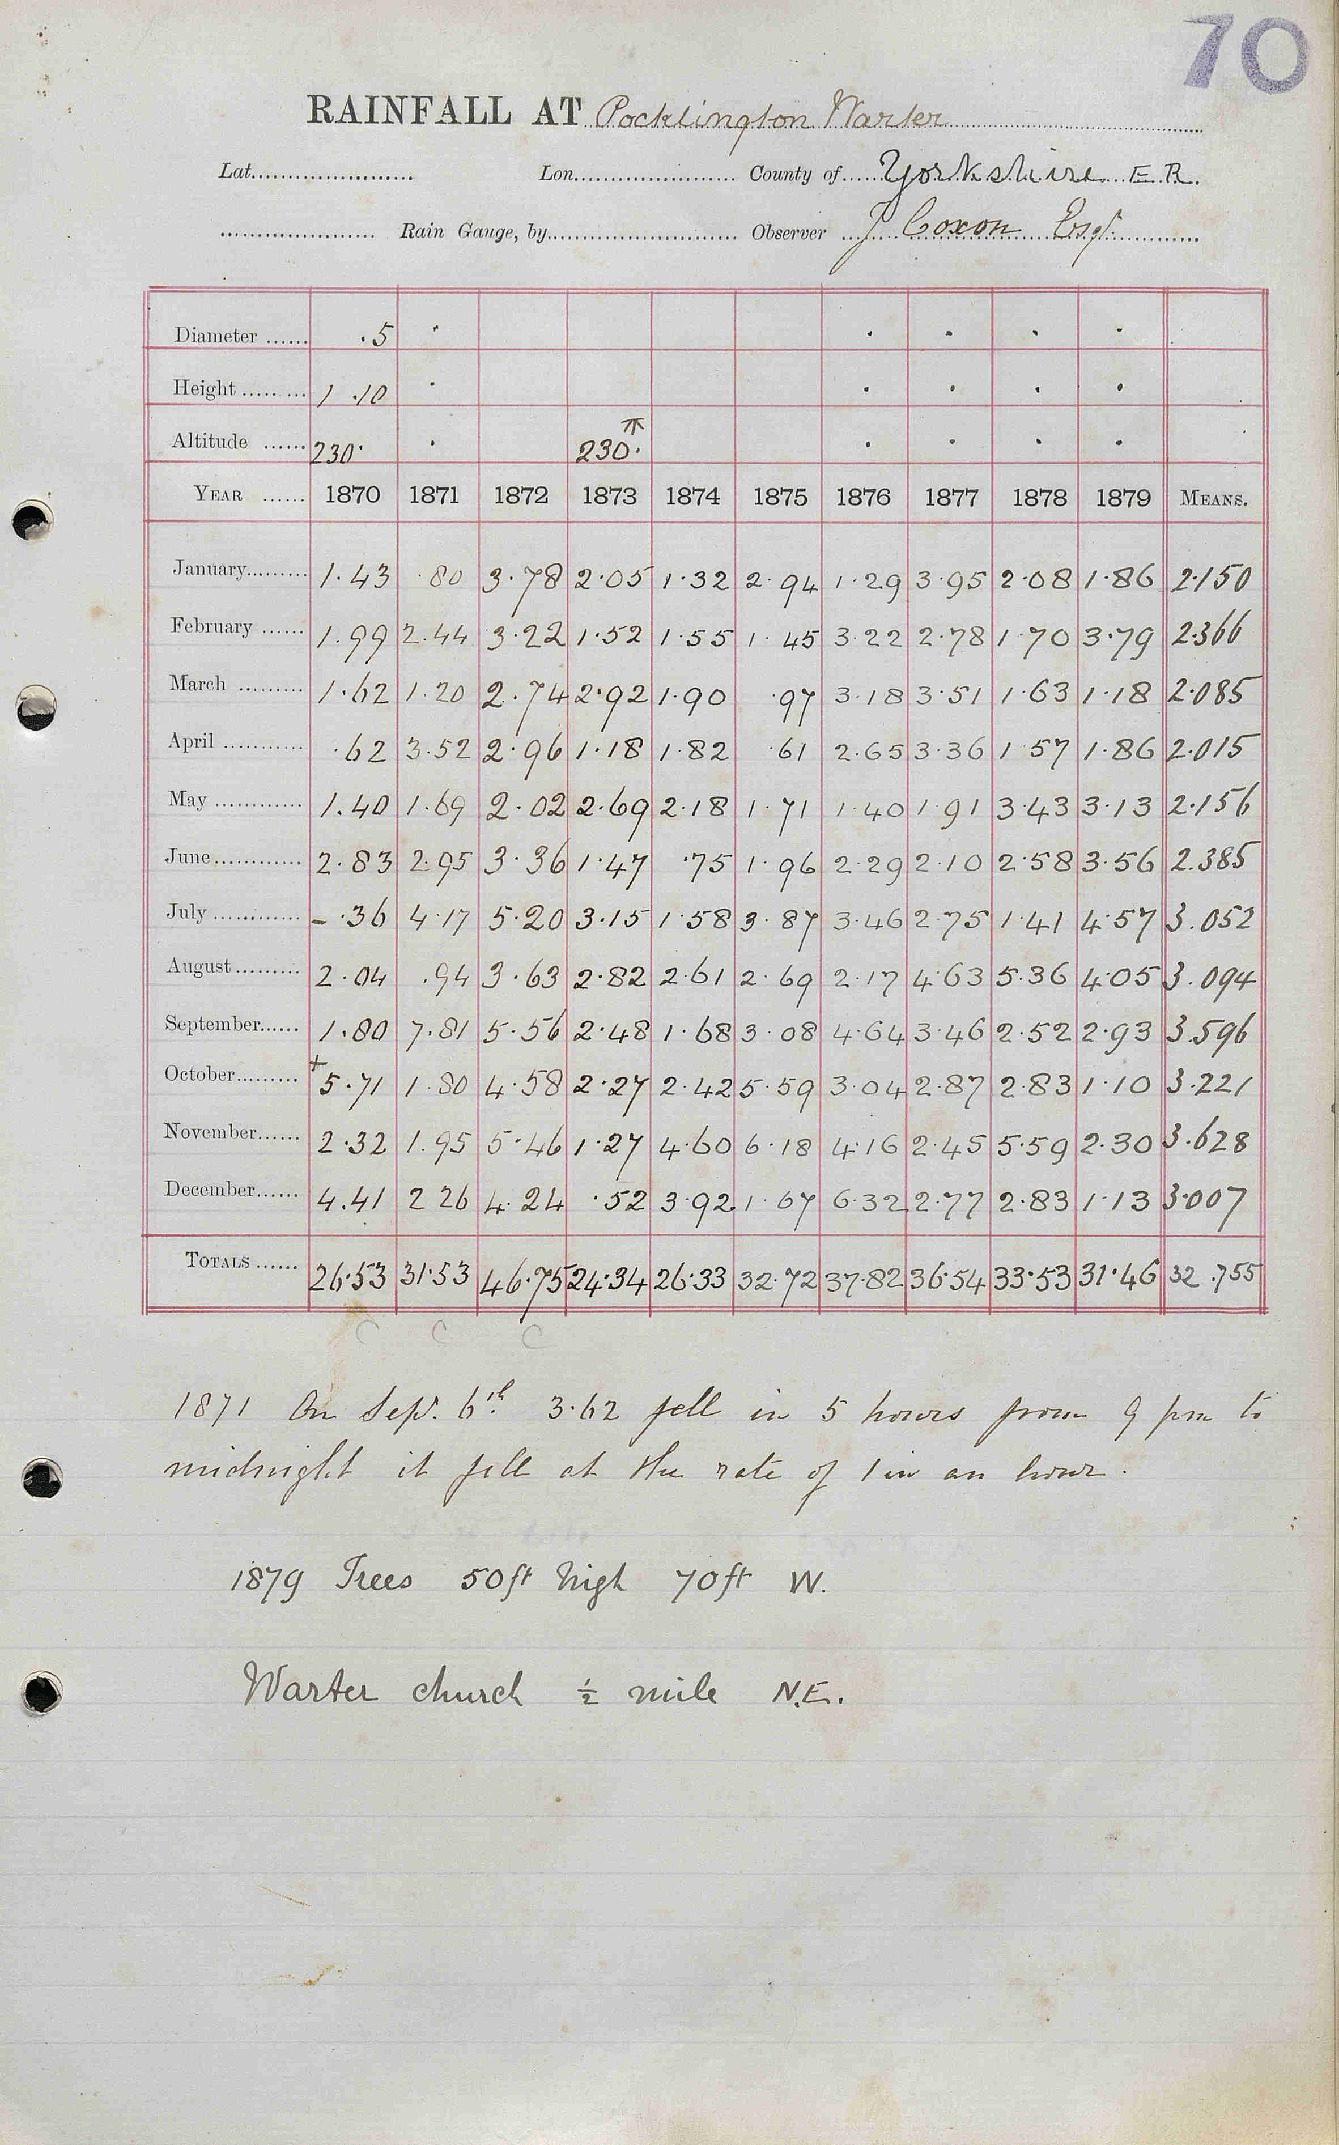 70
RAINFALL AT Pocklington Warter
Lat. Lon. County of Yorkshire E.R.
Rain Gauge, by Observer J Coxon Esqr.
Diameter .5
Height 1 .10
Altitude 230. 230.
YEAR 1870 1871 1872 1873 1874 1875 1876 1877 1878 1879 MEANS.
January 1.43 .80 3.78 2.05 1.32 2.94 1.29 3.95 2.08 1.86 2.150
February 1.99 2.44 3.22 1.52 1.55 1.45 3.22 2.78 1.70 3.79 2.366
March 1.62 1.20 2.74 2.92 1.90 .97 3.18 3.51 1.63 1.18 2.085
April .62 3.52 2.96 1.18 1.82 .61 2.65 3.36 1.57 1.86 2.015
May 1.40 1.69 2.02 2.69 2.18 1.71 1.40 1.91 3.43 3.13 2.156
June 2.83 2.95 3.36 1.47 .75 1.96 2.29 2.10 2.58 3.56 2.385
July - .36 4.17 5.20 3.15 1.58 3.87 3.46 2.75 1.41 4.57 3.052
August 2.04 .94 3.63 2.82 2.61 2.69 2.17 4.63 5.36 4.05 3.094
September 1.80 7.81 5.56 2.48 1.68 3.08 4.64 3.46 2.52 2.93 3.596
October + 5.71 1.80 4.58 2.27 2.42 5.59 3.04 2.87 2.83 1.10 3.221
November 2.32 1.95 5.46 1.27 4.60 6.18 4.16 2.45 5.59 2.30 3.628
December 4.41 2 26 4.24 .52 3.92 1.67 6.32 2.77 2.83 1.13 3.007
TOTALS 26.53 31.53 46.75 24.34 26.33 32.72 37.82 36.54 33.53 31.46 32.755
C C C
1871 On Sep. 6th 3.62 fell in 5 hours from 9 pm to
midnight it fell at the rate of 1 in an hour.
1879 Trees 50ft high 70ft W.
Warter church ½ mile N.E.